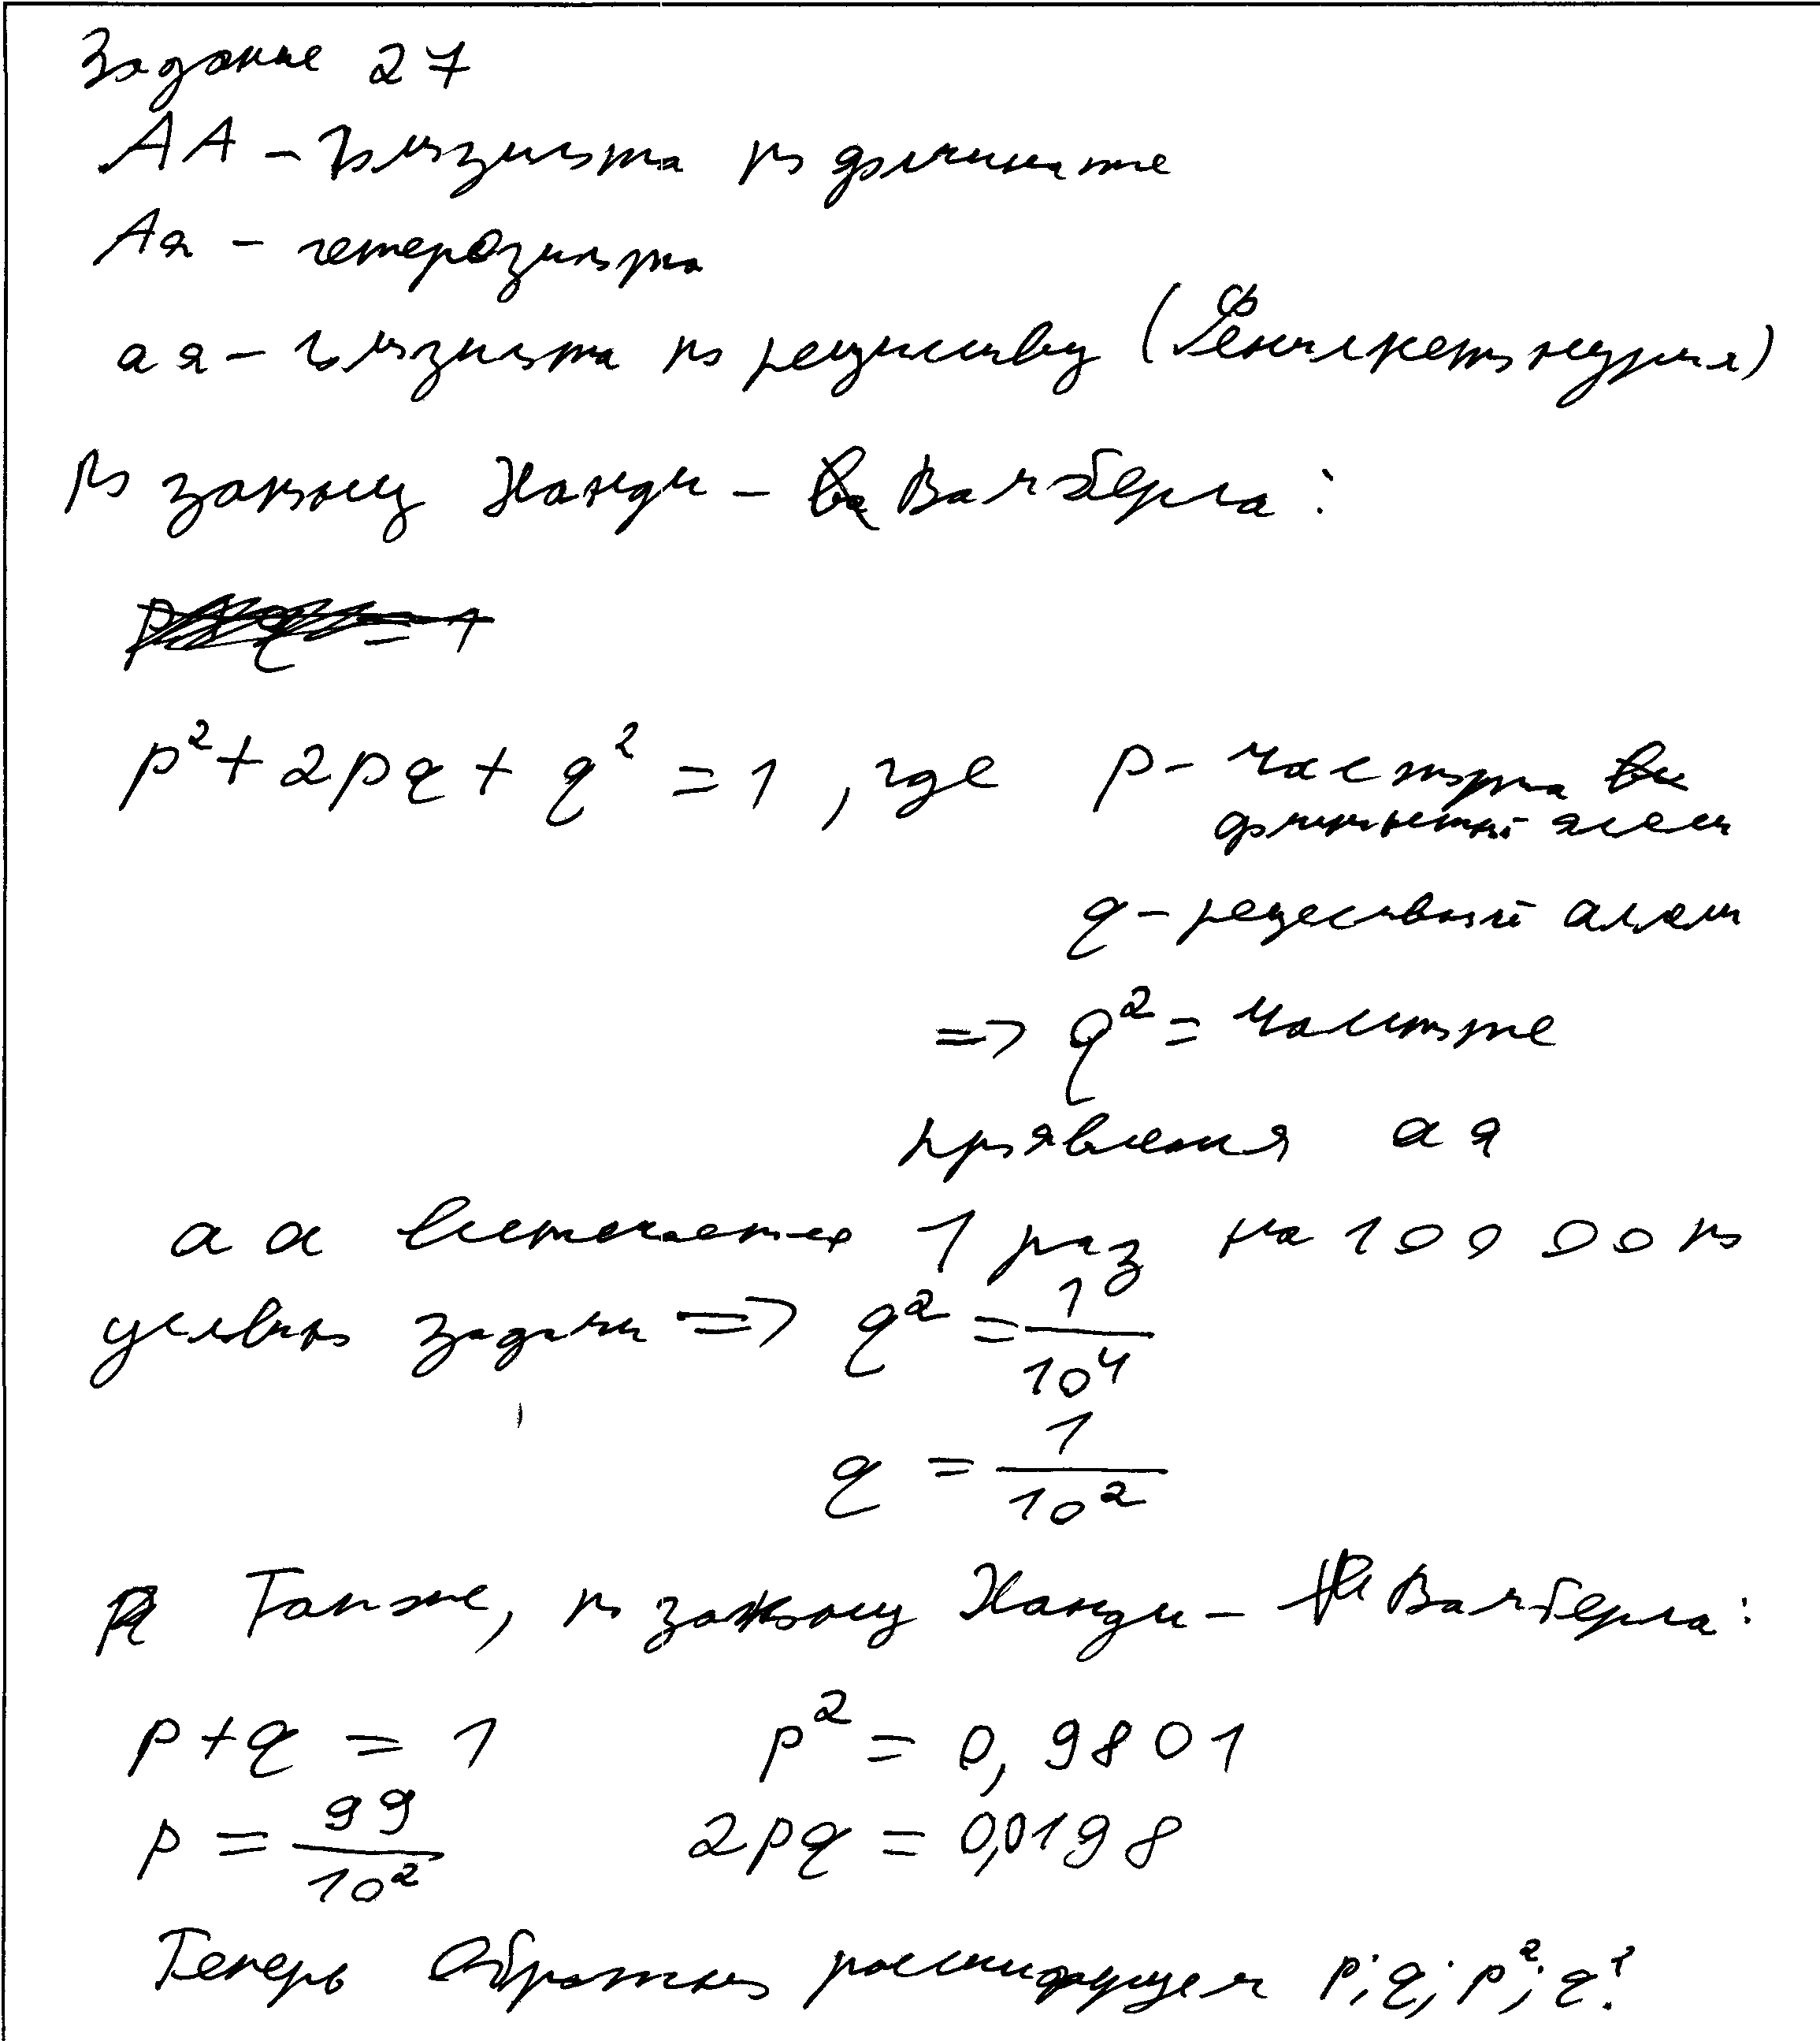 Задание 27
АА – гомозигота по доминанте
Аа – гетерозигота
аа – гомозигота по рецессиву (Фенилкетонурия)
По закону Харди – Вайнберга:
p + q = 1
p² + 2pq + q² = 1, где p – частота
доминантный аллель
q – рецессивный аллель
=> q² = частоте
проявления аа
аа встречается 1 раз на 10000 по
условию задачи => q² = 1/10⁴
q = 1/10²
Также, по закону Харди – Вайнберга:
p + q = 1 p² = 0,9801
p = 99/10² 2pq = 0,0198
Теперь обратно расшифруем p; q; p²; q².